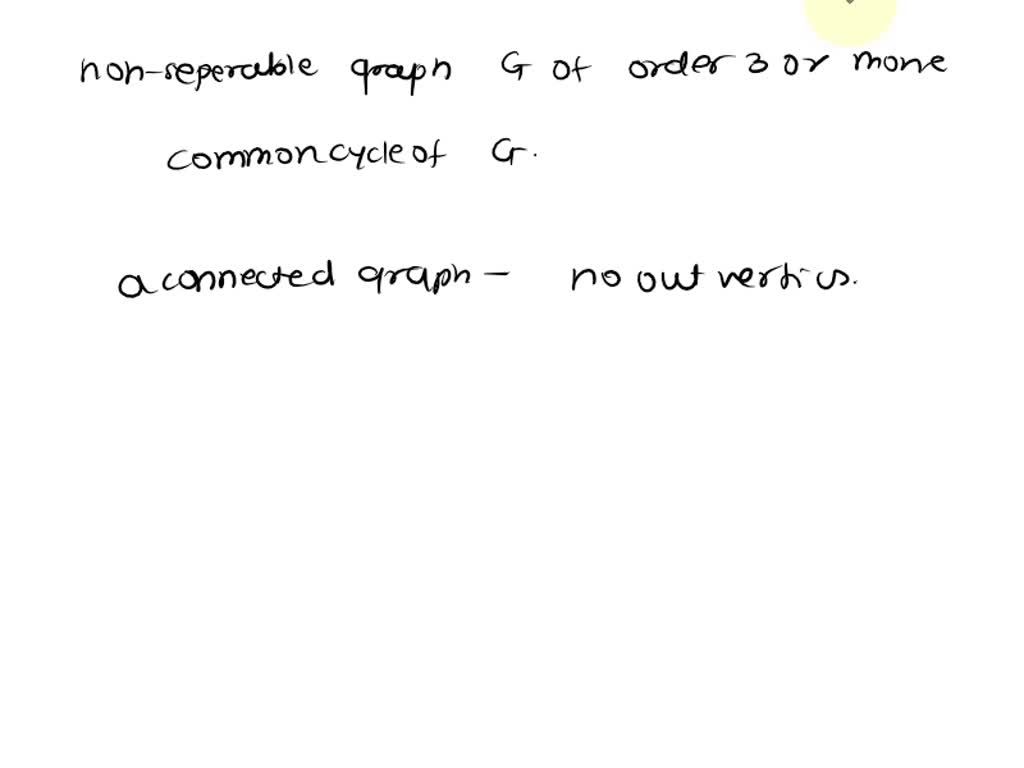 non-seperable graph G of order 3 or more
common cycle of G.
a connected graph - no out vertics.